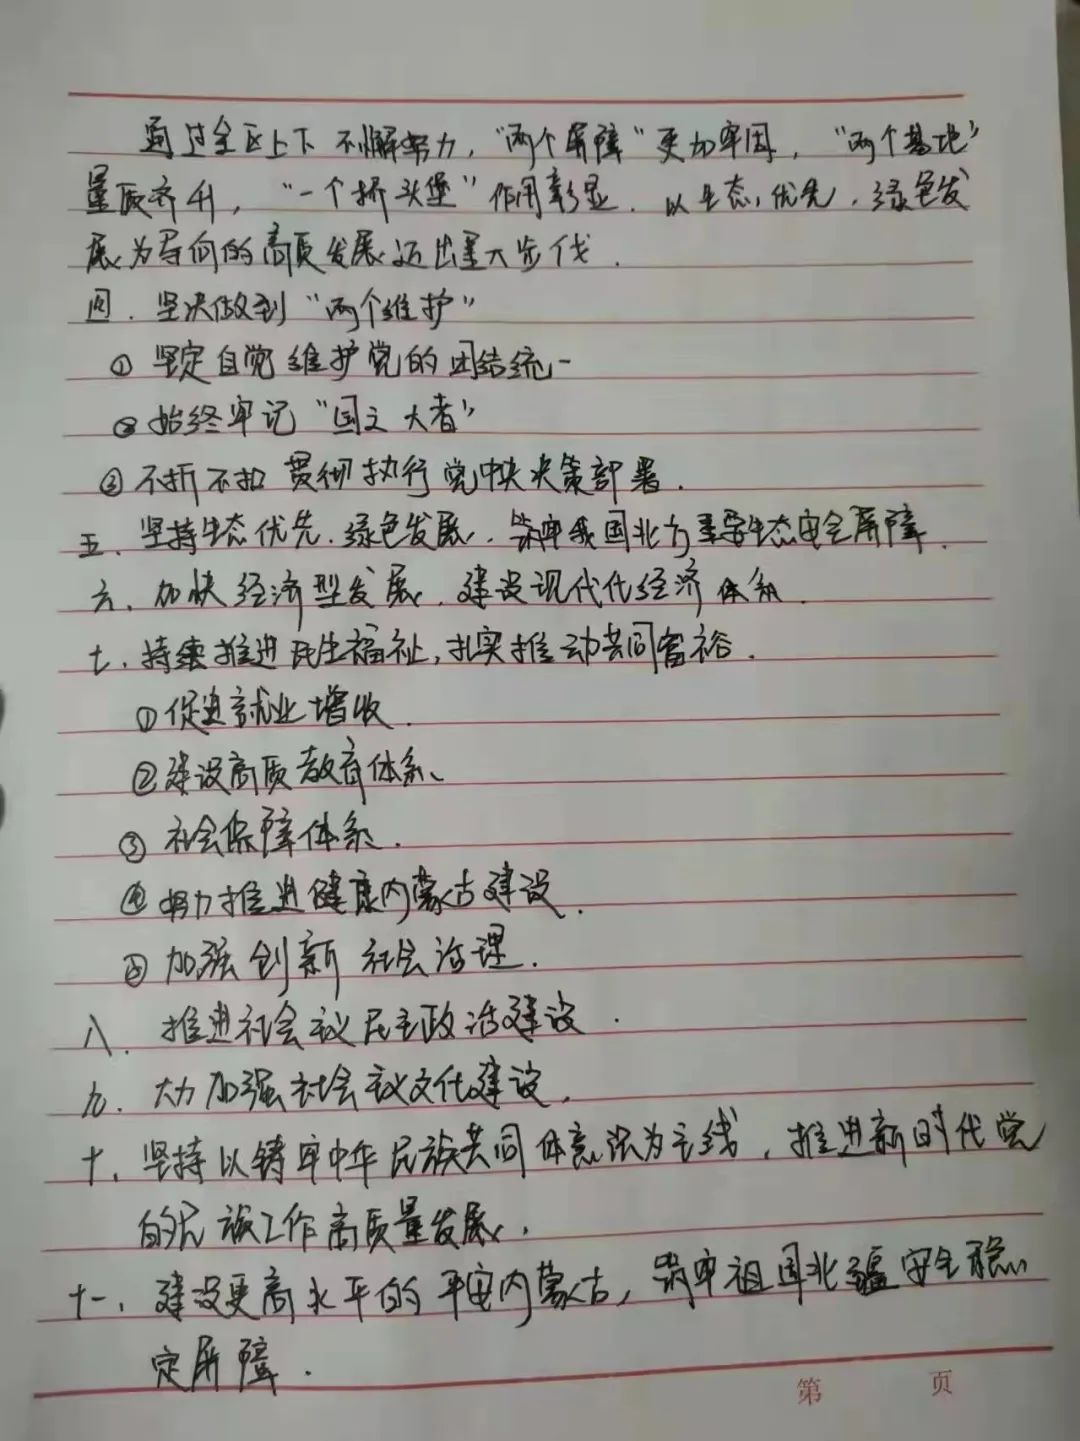 通过全区上下不懈努力，“两个屏障”更加牢固，“两个基地”
量质齐升，“一个桥头堡”作用彰显．以生态优先，绿色发
展为导向的高质发展迈出重大步伐．
四．坚决做到“两个维护”
① 坚定自觉维护党的团结统一
② 始终牢记“国之大者”
③ 不折不扣贯彻执行党中央决策部署．
五．坚持生态优先．绿色发展．筑牢我国北方重要生态安全屏障．
六、加快经济型发展．建设现代化经济体系．
七、持续推进民生福祉，扎实推动共同富裕．
① 促进就业增收．
② 建设高质教育体系、
③ 社会保障体系．
④ 努力推进健康内蒙古建设．
⑤ 加强创新社会治理．
八．推进社会主义民主政治建设．
九．大力加强社会主义文化建设．
十、坚持以铸牢中华民族共同体意识为主线，推进新时代党
的民族工作高质量发展．
十一、建设更高水平的平安内蒙古，筑牢祖国北疆安全稳
定屏障．
第 页